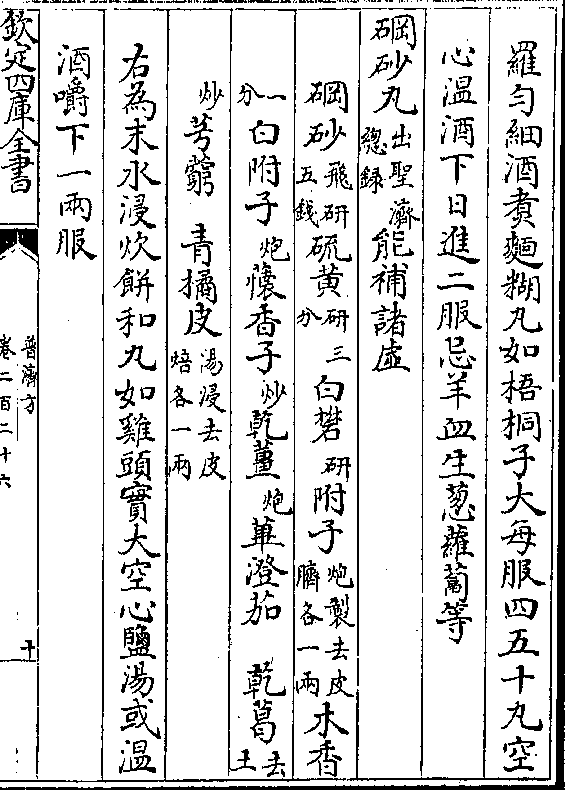 羅勻細酒煮麵糊丸如梧桐子大每服四五十丸空
心溫酒下日進二服忌羊血生葱蘿蔔等
碙砂丸出聖濟總録能補諸虛
碙砂飛研五錢硫黄研三分白礬研附子炮製去皮臍各一兩木香
一分白附子炮懷香子炒乾薑炮蓽澄茄 乾葛去土
炒芎藭 青橘皮湯浸去皮焙各一兩
右為末水浸炊餅和丸如雞頭實大空心鹽湯或溫
酒嚼下一兩服
欽定四庫全書
普濟方
卷二百二十六
十